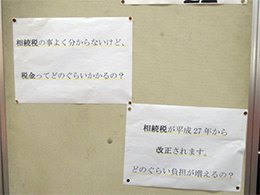 相続税の事よく分からないけど、
税金ってどのぐらいかかるの？
相続税が平成27年から
改正されます。
どのぐらい負担が増えるの？